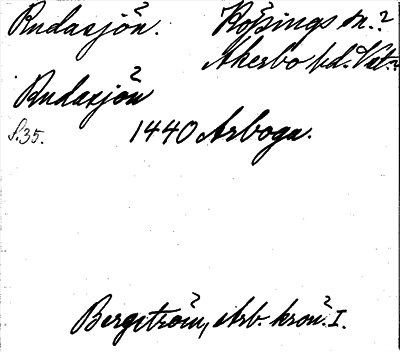 Rudasjön. Köpings sn.?
Åkerbo hd. Vstm.
Rudasjön
S. 35. 1440 Arboga.
Bergström, Arb. krön. I.